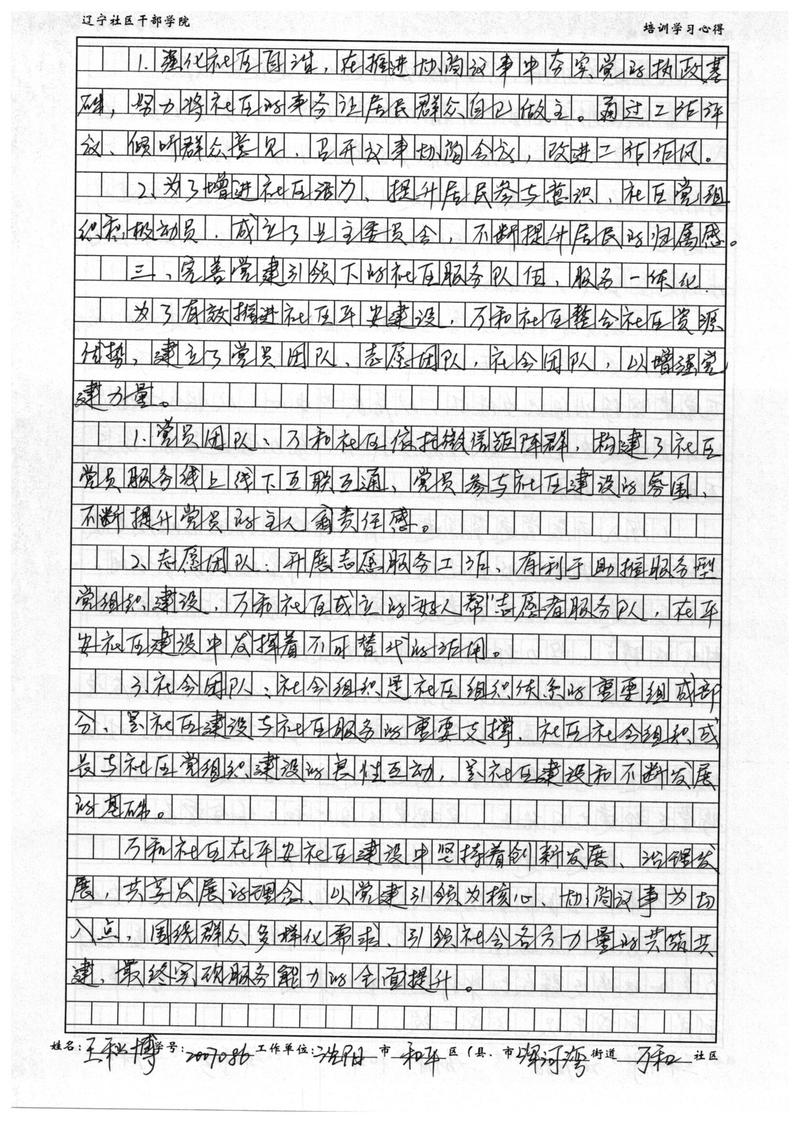 辽宁社区干部学院
培训学习心得
1.强化社区自治,在推进协商议事中夯实党的执政基
础,努力将社区的事务让居民群众自己做主。通过工作评
议、倾听群众意见,召开议事协商会议,改进工作作风。
2、为了增进社区活力、提升居民参与意识,社区党组
织积极动员,成立了业主委员会,不断提升居民的归属感。
三、完善党建引领下的社区服务队伍,服务一体化
为了有效推进社区平安建设,万和社区整合社区资源
优势,建立了党员团队、志愿团队,社会团队,以增强党
建力量。
1.党员团队、万和社区依托微信矩阵群,构建了社区
党员服务线上线下互联互通、党员参与社区建设的氛围、
不断提升党员的主人翁责任感。
2、志愿团队、开展志愿服务工作、有利于助推服务型
党组织建设,万和社区成立的"好人帮"志愿者服务队、在平
安社区建设中发挥着不可替代的作用。
3、社会团队:社会组织是社区组织体系的重要组成部
分、是社区建设与社区服务的重要支撑、社区社会组织成
长与社区党组织建设的良性互动,是社区建设和不断发展
的基础。
万和社区在平安社区建设中坚持着创新发展、治理发
展、共享发展的理念、以党建引领为核心、协商议事为切
入点,围绕群众多样化需求、引领社会各方力量的共筑共
建、最终实现服务能力的全面提升。
姓名:王秋博学号:2007086工作单位:沈阳市和平区(县、市)浑河湾街道万和社区